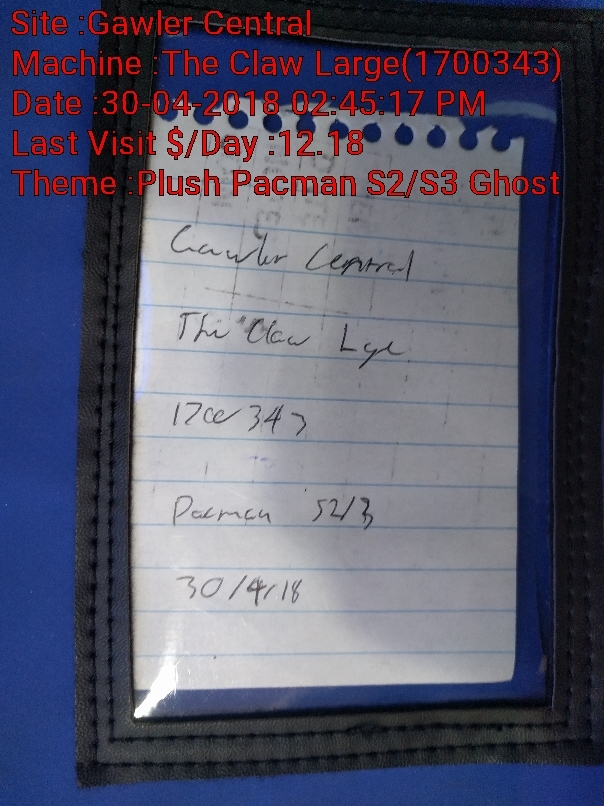 Site :Gawler Central
Machine :The Claw Large(1700343)
Date :30-04-2018 02:45:17 PM
Last Visit $/Day :12.18
Theme :Plush Pacman S2/S3 Ghost
Gawler Central
The Claw Lge
1700343
Pacman S2/3
30/4/18